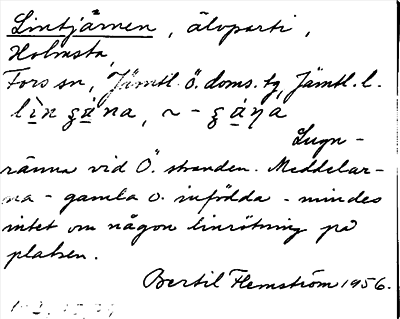 Lintjärnen, älvparti,
Holmsta,
Fors sn, Jämtl. ö. doms. tg, Jämtl. l.
Lugn-
ränna vid Ö. stranden. Meddelar-
na - gamla o. infödda - mindes
intet om någon linrötning på
platsen.
Bertil Flemström 1956.